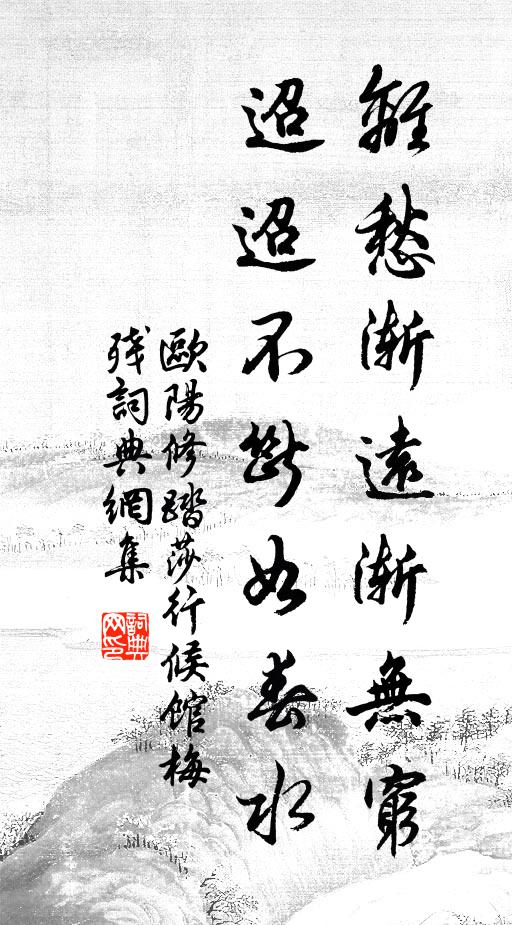 離愁漸遠漸無窮
迢迢不斷如春水
歐陽修踏莎行候館梅
殘詞典網集
詞典
网印